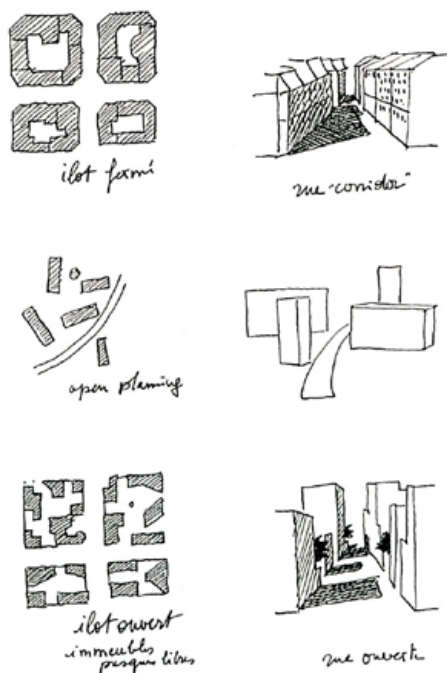 ilot fermé
rue "corridor"
open planning
ilot ouvert
immeubles
presques libres
rue ouverte